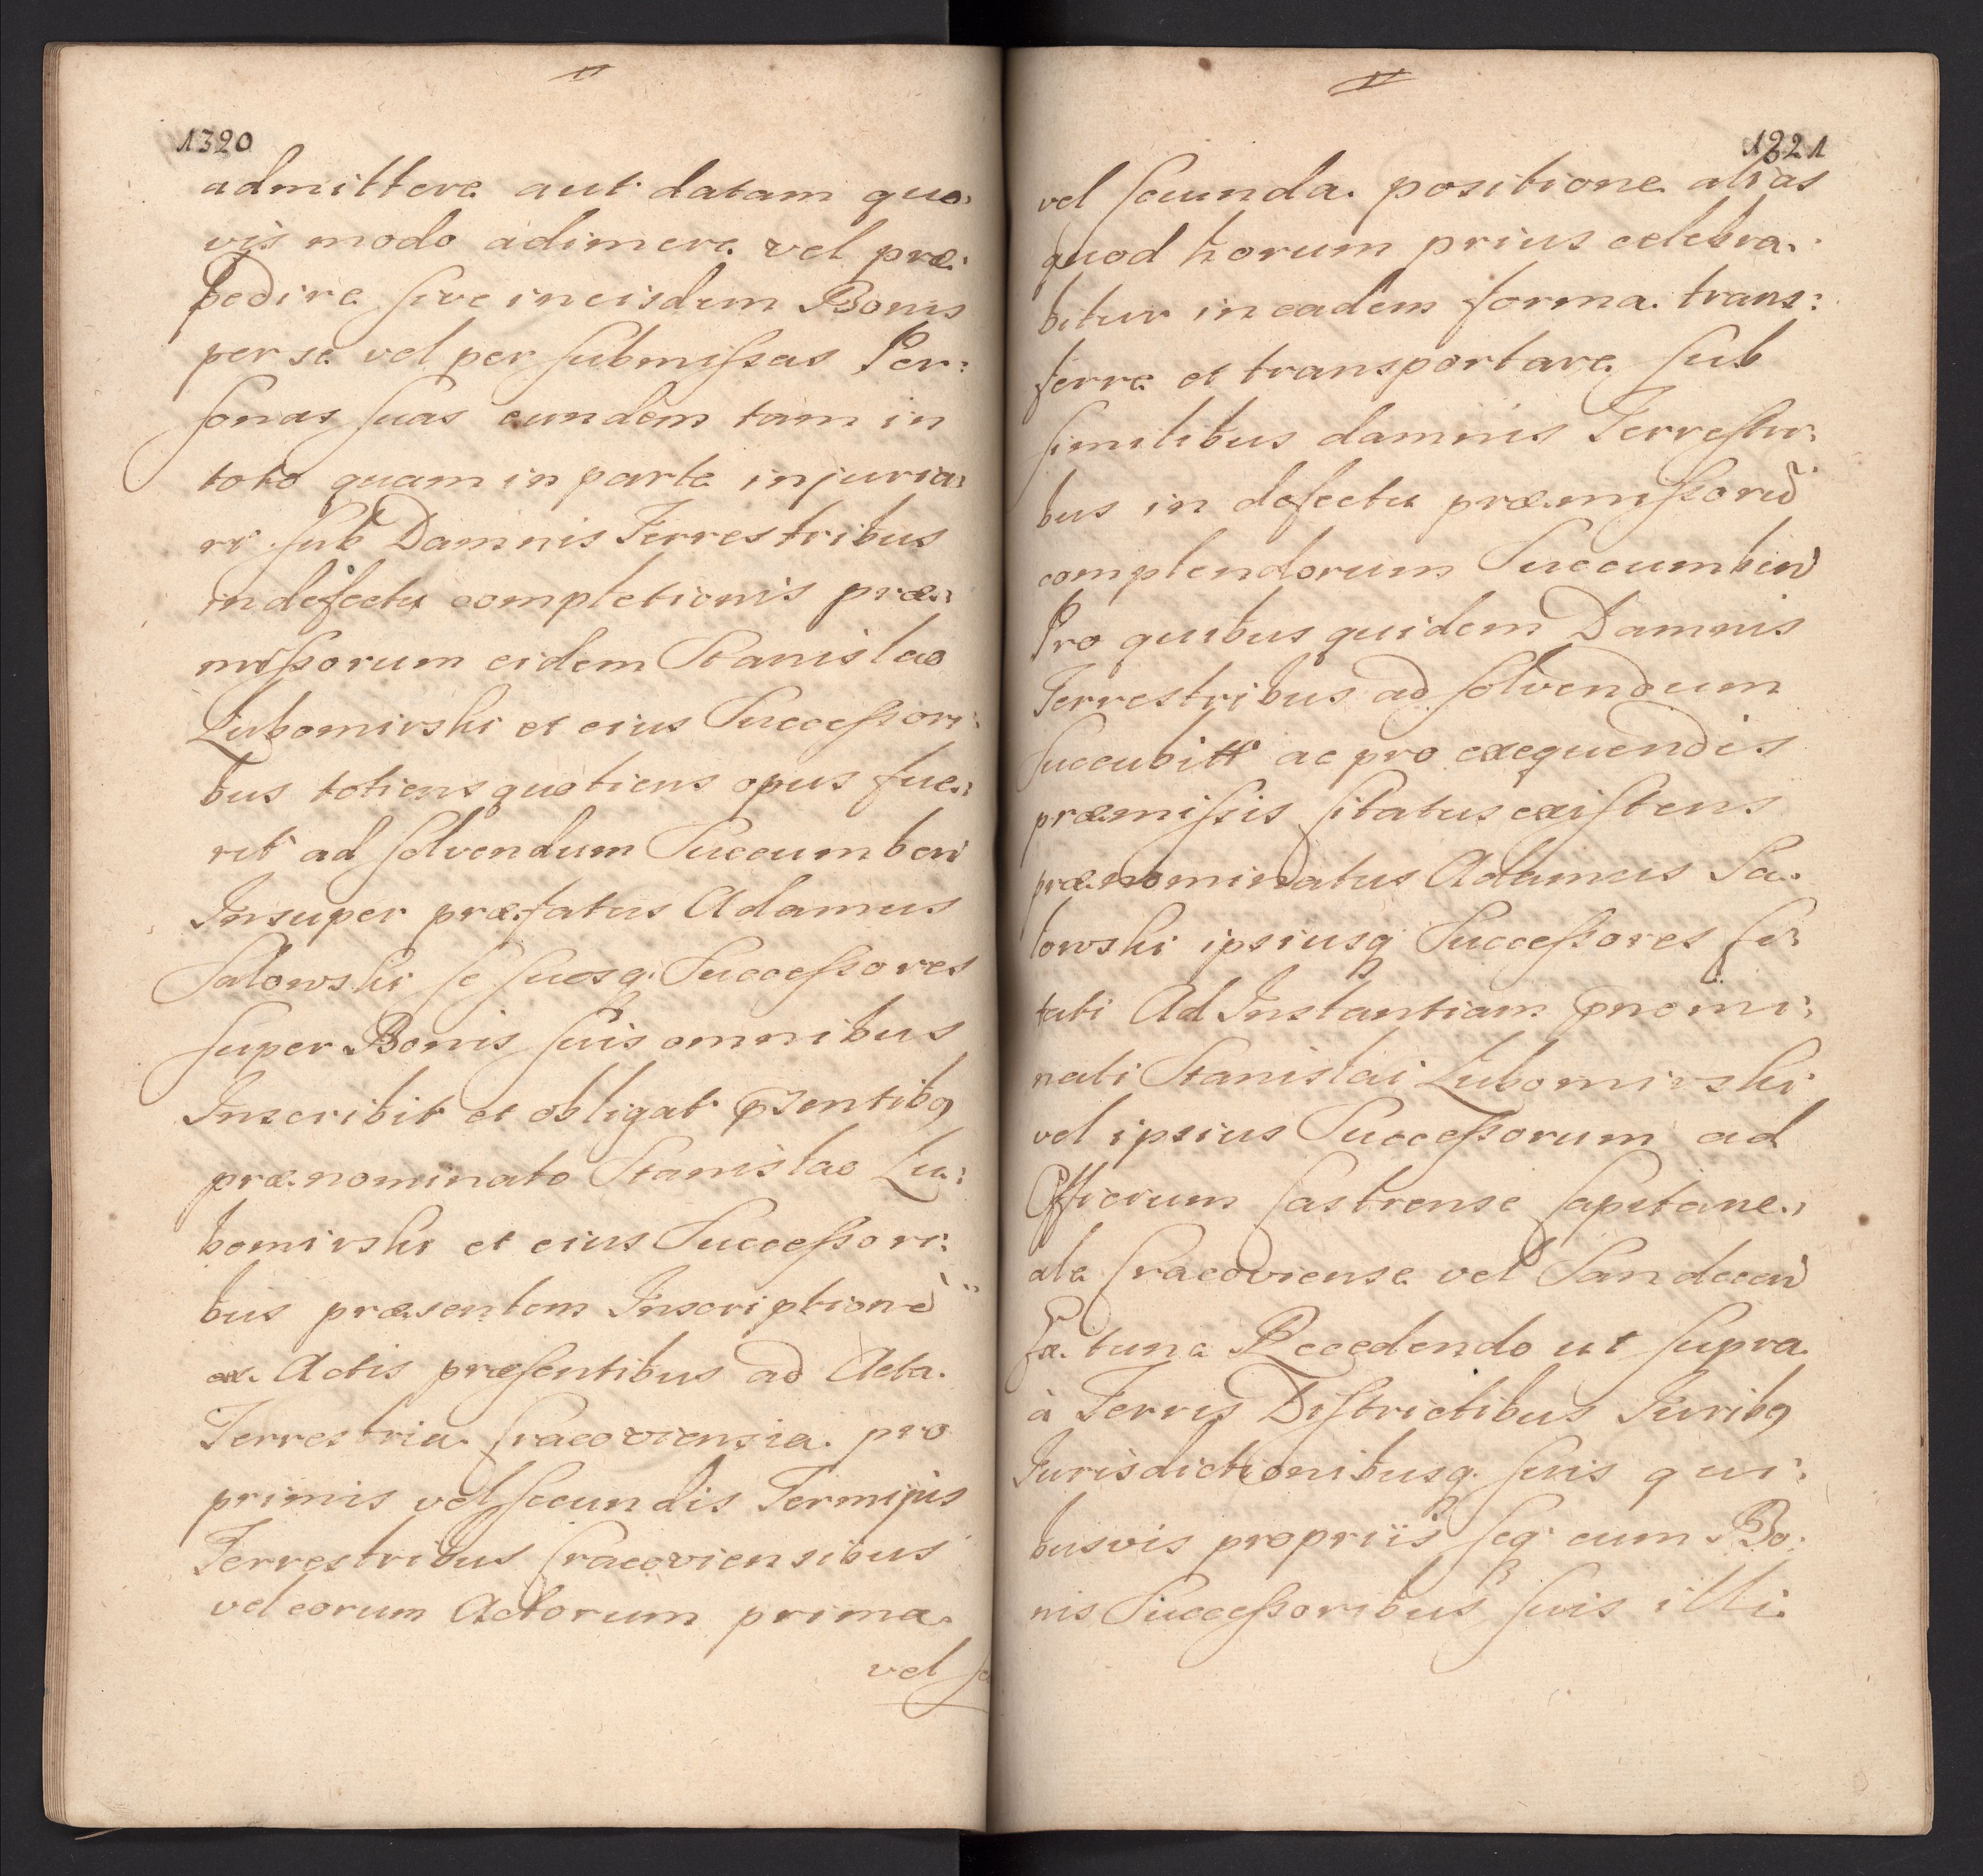 1320
admittere aut datam quo:
vis modo adimere vel præ:
pedire sive in eisdem Bonis
per se vel per submißas Per:
sonas suas eundem tam in
toto quam in parte injuria:
ri sub Damnis Terrestribus
in defectu completionis præ:
mißorum eidem Stanislao
Lubomirski et eius Succeßori:
bus totiens quotiens opus fue:
rit ad solvendum Succumbend
Insuper præfatus Adamus
Salowski se suosq Succeßores
super Bonis suis omnibus
Inscribit et obligat pzentibq
prænominato Stanislao Lu:
bomirski et eius Succeßori:
bus præsentem Inscriptione
ex Actis præsentibus ad Acta
Terrestria Cracoviensia pro
primis vel secundis Terminis
Terrestribus Cracoviensibus
vel eorum Actorum prima
vel se
1321
vel secunda positione alias
quod horum prius celebra:
bitur in eadem forma trans:
ferre et transportare sub
similibus damnis Terrestri:
bus in defectu præmißorū
complendorum Succumbend
Pro quibus quidem Damnis
Terrestribus ad solvendum
Succubitt ac pro exequendis
præmißis sitatus existens
prænominatus Adamus Sa:
lowski ipsiusq Succeßores si:
tati Ad Instantiam pnomi:
nati Stanislai Lubomirski
vel ipsius Succeßorum ad
Officium Castrense Capitane:
ale Cracoviense vel Sandecen
tunc Recedendo ut supra
à Terris Districtibus Juribq
Jurisdictionibusq suis qui:
busvis propriis seq cum Bo:
nis Succeßoribus suis illi